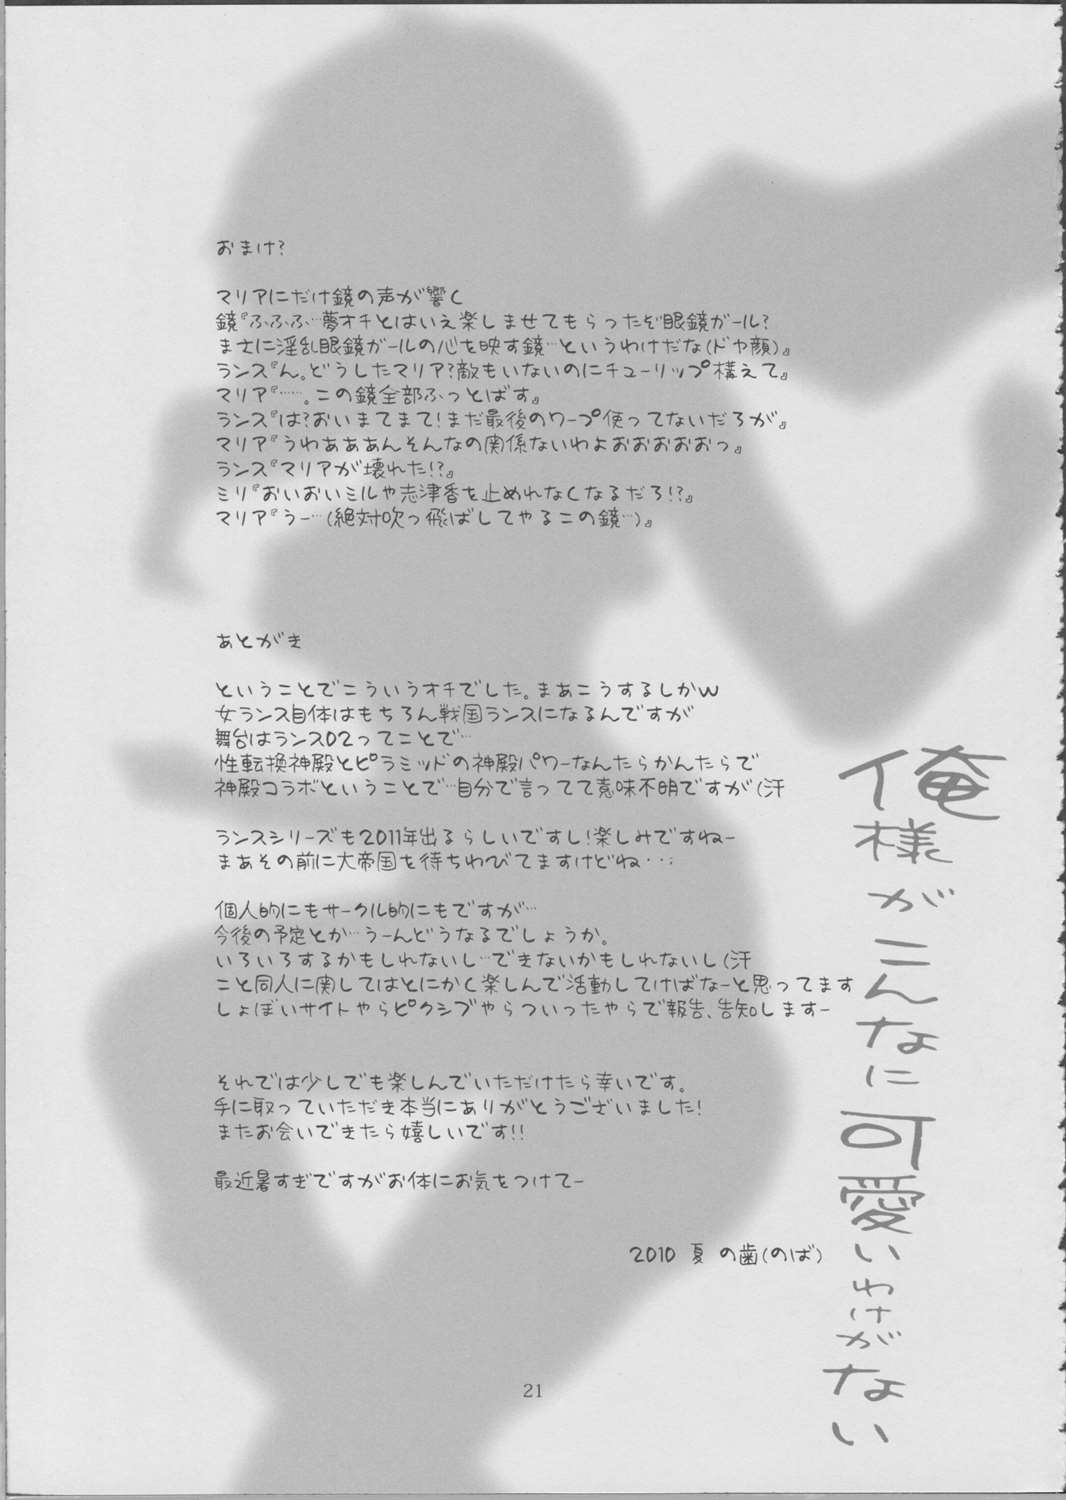 おまけ?
マリアにだけ鏡の声が響く
鏡『ふふふ…夢オチとはいえ楽しませてもらったぞ眼鏡ガール?
まさに淫乱眼鏡ガールの心を映す鏡…というわけだな(ドヤ顔)』
ランス『ん。どうしたマリア?敵もいないのにチューリップ構えて』
マリア『……。この鏡全部ふっとばす。』
ランス『は?おいまてまて!まだ最後のワープ使ってないだろが』
マリア『うわあああんそんなの関係ないわよおおおおおっ』
ランス『マリアが壊れた!?』
ミリ『おいおいミルや志津香を止めれなくなるだろ!?』
マリア『うー…(絶対吹っ飛ばしてやるこの鏡…)』
あとがき
ということでこういうオチでした。まあこうするしかw
女ランス自体はもちろん戦国ランスになるんですが
舞台はランス02ってことで…
性転換神殿とピラミッドの神殿パワーなんたらかんたらで
神殿コラボということで…自分で言ってて意味不明ですが(汗
ランスシリーズも2011年出るらしいですし!楽しみですねー
まあその前に大帝国を待ちわびてますけどね・・・
個人的にもサークル的にもですが…
今後の予定とか…うーんどうなるでしょうか。
いろいろするかもしれないし…できないかもしれないし(汗
こと同人に関してはとにかく楽しんで活動してけばなーと思ってます
しょぼいサイトやらピクシブやらついったやらで報告、告知しますー
それでは少しでも楽しんでいただけたら幸いです。
手に取っていただき本当にありがとうございました!
またお会いできたら嬉しいです!!
最近暑すぎですがお体にお気をつけてー
2010 夏 の歯(のば)
俺様がこんなに可愛いわけがない
21